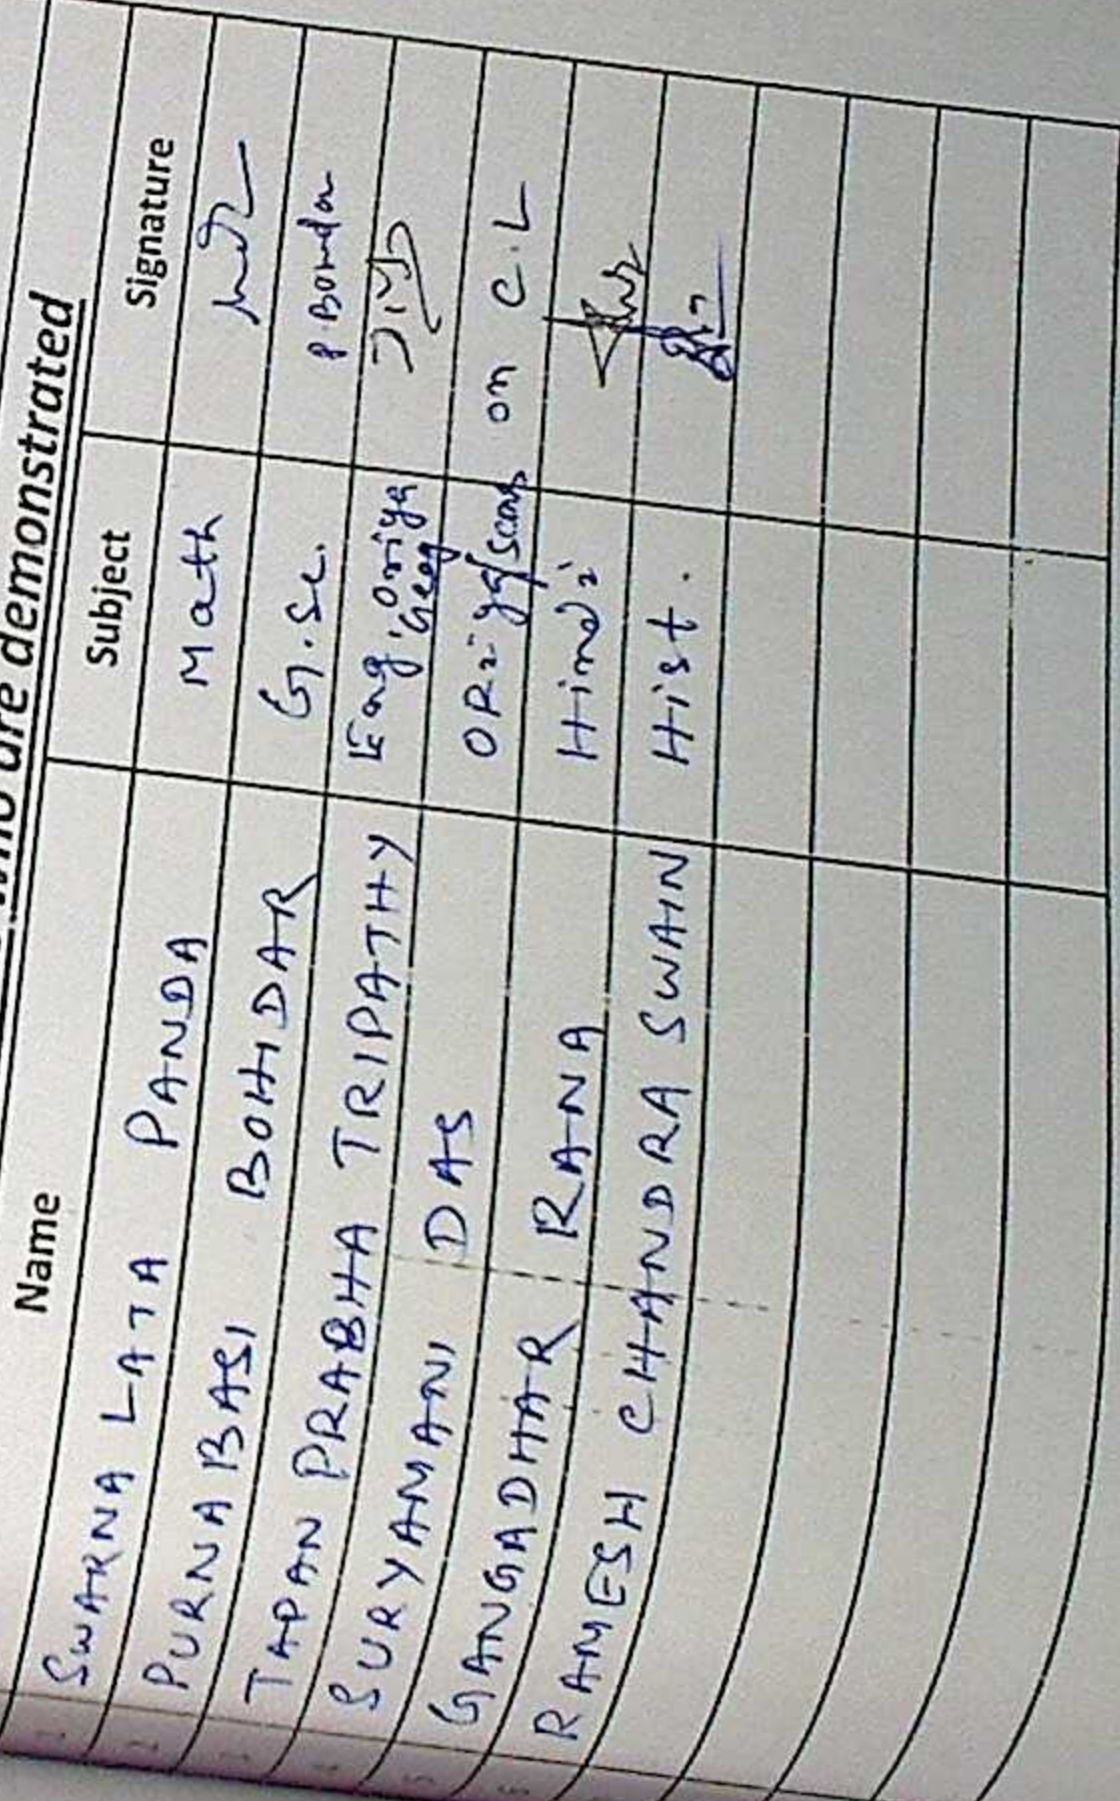 who are demonstrated
Name Subject Signature
1 SWARNA LATA PANDA Math
2 PURNABASI BOHIDAR G.Sc. P Bohidar
3 TAPAN PRABHA TRIPATHY Eng, Oriya Geog
4 SURYAMANI DAS ORiya/Scan on C.L
5 GANGADHAR RANA Hindi
6 RAMESH CHANDRA SWAIN Hist.